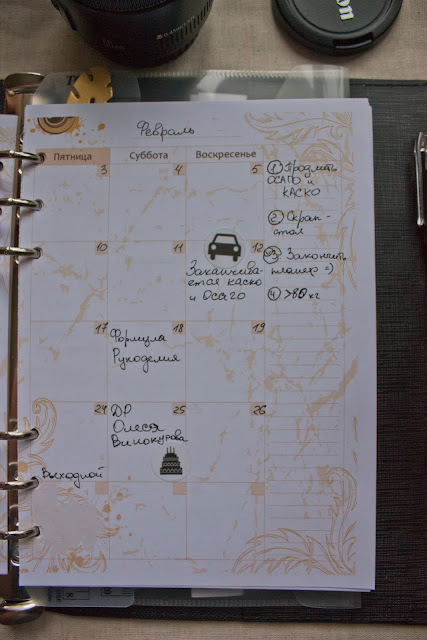 Февраль
Пятница Суббота Воскресенье
3 4 5
10 11 12
Заканчива-
ется каско
и Осаго
17 18 19
Формула
Рукоделия
24 25 26
ДР
Олеся
Винокурова
Выходной
① Продлить
ОСАГО и
КАСКО
② Скрап-
стол
③ Закончить
планер =)
④ >80 кг